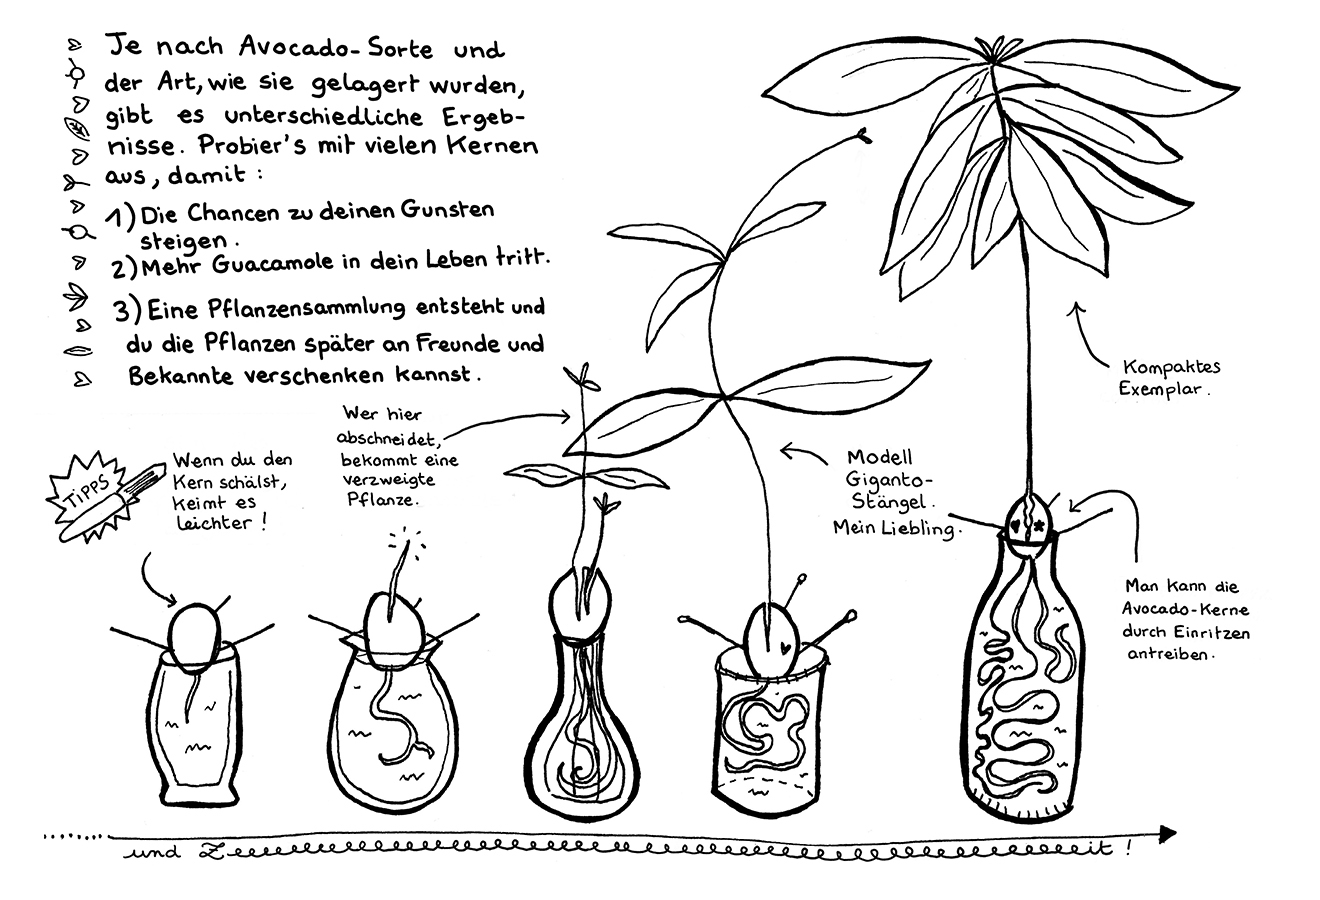 Je nach Avocado-Sorte und
der Art, wie sie gelagert wurden,
gibt es unterschiedliche Ergeb-
nisse. Probier's mit vielen Kernen
aus, damit :
1) Die Chancen zu deinen Gunsten
steigen.
2) Mehr Guacamole in dein Leben tritt.
3) Eine Pflanzensammlung entsteht und
du die Pflanzen später an Freunde und
Bekannte verschenken kannst.
TIPPS
Wenn du den
Kern schälst,
keimt es
leichter !
Wer hier
abschneidet,
bekommt eine
verzweigte
Pflanze.
Modell
Giganto-
Stängel.
Mein Liebling.
Kompaktes
Exemplar.
Man kann die
Avocado-Kerne
durch Einritzen
antreiben.
und Zeeeeeeeeeeeeeeeeeeeeeeeeeeeeeeeeeeeeeeeeeeeeeeeeeeeeit !